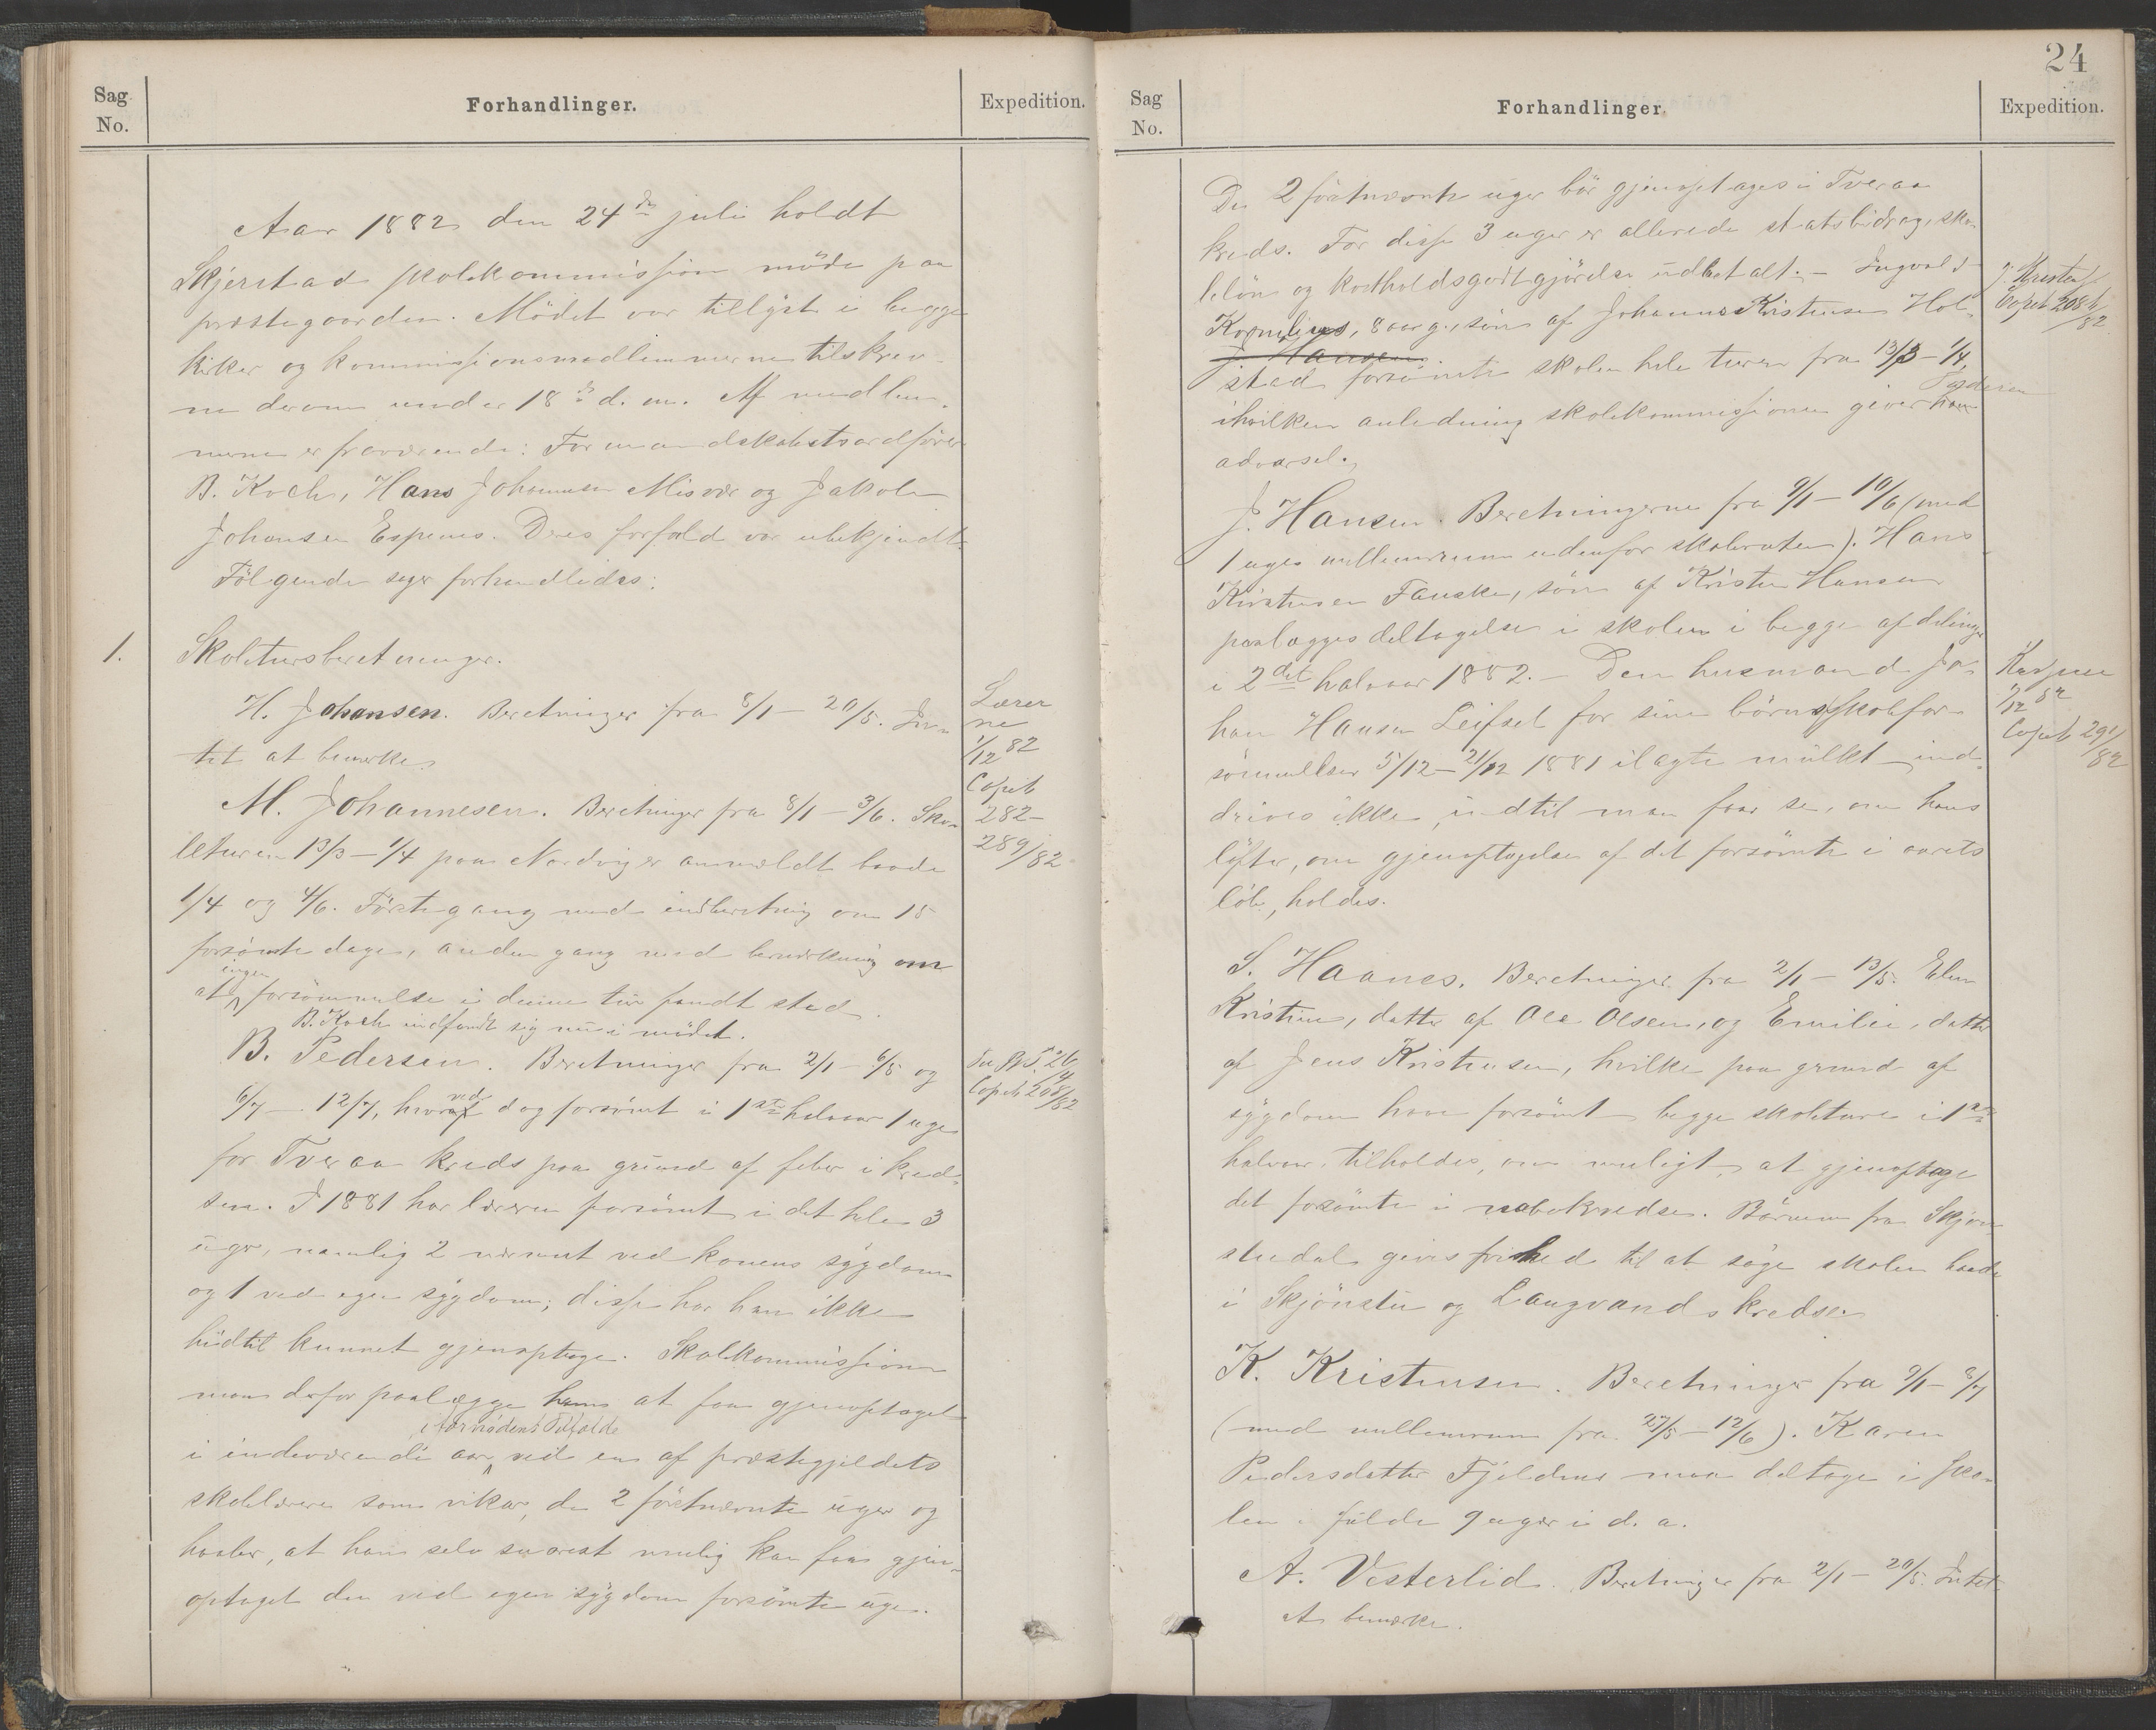 Sag No.
Forhandlinger.
Expedition.
Aar 1882 den 24de juli holdt
Skjerstad skolekommission möde paa
præstegaarden. Mödet var tillyst i begge
kirker og kommissionsmedlemmerne tilskrev-
ne derom under 18de d. m. Af medlem-
merne er fraværende: Formandskabetsordfører
B. Koch, Hans Johannesen Misvær og Jakob
Johansen Espenes. Deres forfald var ubekjendt.
Fölgende sager forhandledes:
1. Skoletursberetninger.
H. Johansen. Beretninger fra 8/1 – 20/5. In-
tet at bemerke.
Lærer
ne
1/12 82
Copieb
282–
289/82
M. Johannesen. Beretninger fra 8/1 – 3/6. Sko-
leturen 13/3 – 1/4 paa Nordvig er anmeldt baade
1/4 og 4/6. Förste gang med indberetning om 15
forsömte dage, anden gang med bemerkning om
at ingen forsömmelse i denne tur fandt sted.
B. Koch indfandt sig nu i mödet.
B. Pedersen. Beretninger fra 2/1 – 6/5 og
6/7 – 12/7, hvorved dog forsömt i 1ste halvaar 1 uge
Copieb 208/82
for Tveraa kreds paa grund af feber i kred-
sen. I 1881 har læreren forsömt i det hele 3
uger, namlig 2 nærmest ved konens sygdom
og 1 ved egen sygdom; disse har han ikke
hidtil kunnet gjenoptage. Skolekommissionen
maa derfor paalægge ham at faa gjenoptaget
i indeværende aar, i fornødent Tilfælde ved en af præstegjeldets
skolelærere som vikar, de 2 förstnævnte uger og
haaber, at han selv snarest mulig kan faa gjen-
optaget den ved egen sygdom forsömte uge.
24
Sag No.
Forhandlinger.
Expedition.
De 2 förstnævnte uger bör gjenoptages i Tveraa
kreds. For disse 3 uger er allerede statsbidrag, sko-
lelön og kostholdsgodtgjörelse udbetalt. – Ingvald
Kornelius, 8 aar g., sön af Johannes Kristensen Hol-
J. Hansen.
stad forsömte skolen hele turen fra 13/3 – 1/4,
i hvilken anledning skolekommissionen giver ham Faderen
advarsel.
Copieb 208b/82
J. Hansen. Beretningerne fra 9/1 – 10/6 (med
1 uges mellemrum udenfor skoleruten). Hans
Kristensen Fauske, sön af Kristen Hansen
paalægges deltagelse i skolen i begge afdelinger
i 2det halvaar 1882. – Den husmand Jo-
han Hansen Leifset for sine börns skolefor-
sömmelser 5/12 – 21/12 1881 ilagte mulkt ind-
drives ikke, indtil man faar se, om hans
löfter, om gjenoptagelse af det forsömte i aarets
löb, holdes.
1/12 82
Copieb 291/82
S. Haanes. Beretninger fra 2/1 – 13/5. Elen
Kristine, datter af Ole Olsen, og Emilie, datter
af Jens Kristensen, hvilke paa grund af
sygdom have forsömt begge skoleture i 1ste
halvaar, tilholdes, om muligt, at gjenoptage
det forsömte i nabokredse. Börnene fra Skjön-
studal gives frihed til at söge skolen baade
i Skjönstu og Langvands kredse.
K. Kristensen. Beretninger fra 9/1 – 8/7
(med mellemrum fra 27/5 – 12/6). Karen
Pedersdatter Fjeldene maa deltage i sko-
len i fulde 9 uger i d. a.
A. Vesterlid. Beretninger fra 2/1 – 20/5. Intet
at bemærke.